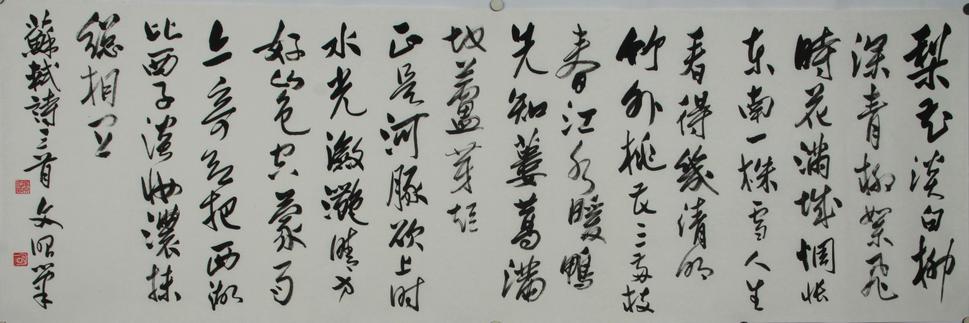 梨花淡白柳
深青柳絮飛
時花滿城惆悵
東南一株雪人生
看得幾清明
竹外桃花三兩枝
春江水暖鴨
先知蔞蒿滿
地蘆芽短
正是河豚欲上时
水光瀲灩晴方
好山色空蒙雨
亦奇若把西湖
比西子淡妝濃抹
總相宜
蘇軾詩三首 文昭筆